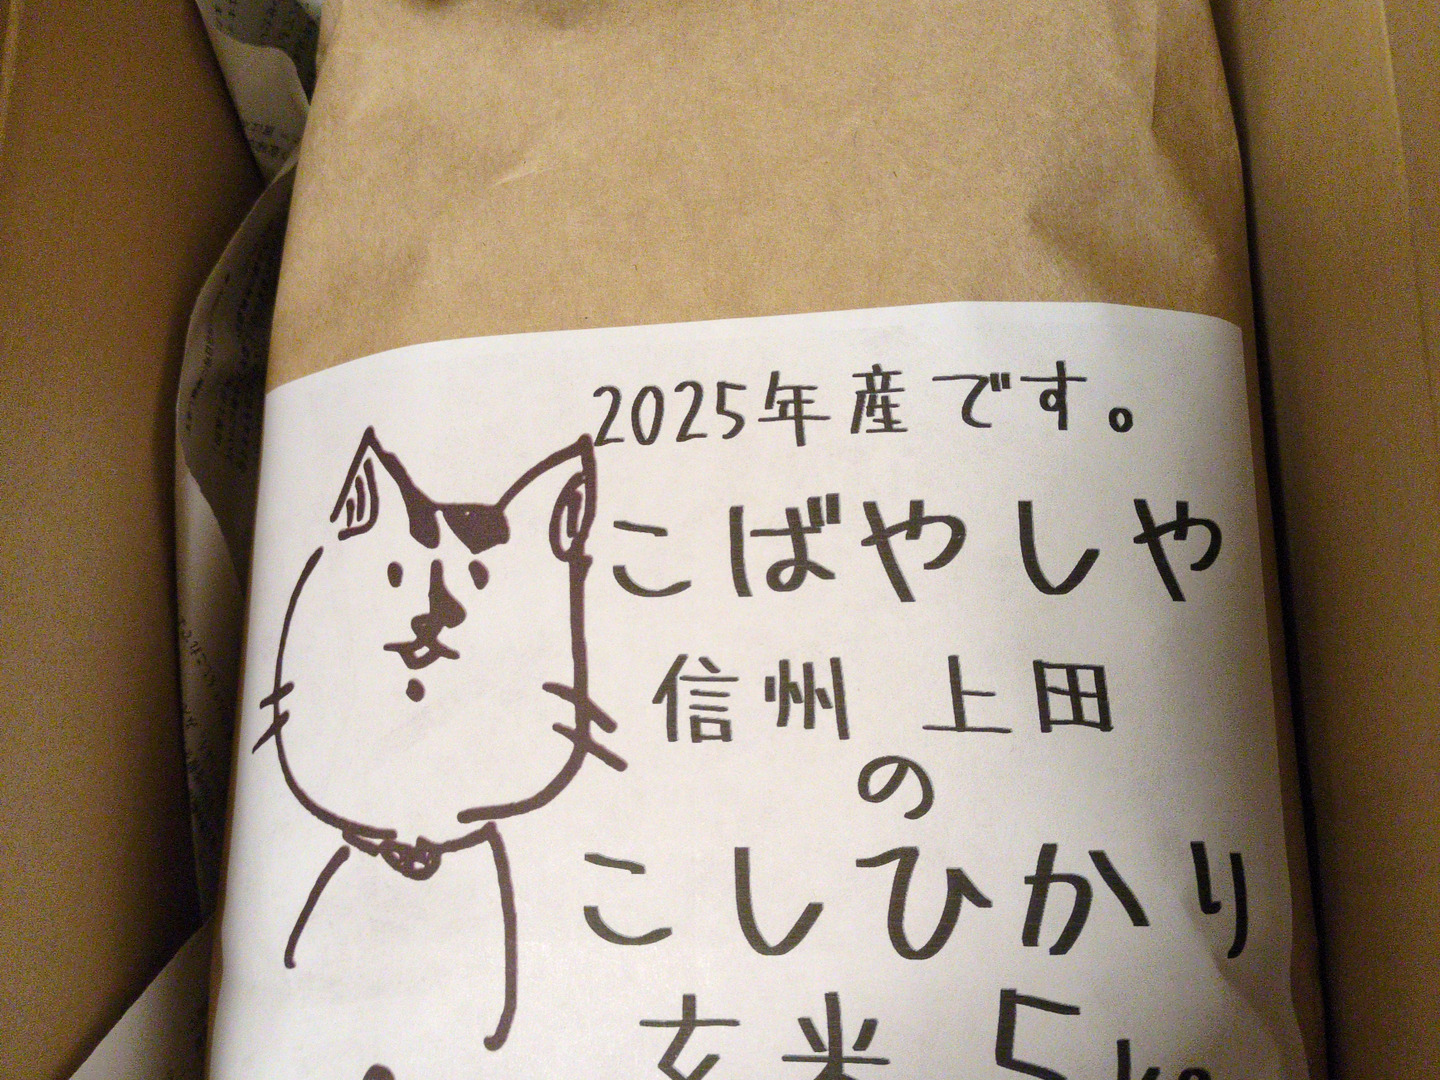 2025年産です。
こばやしや
信州 上田
の
こしひかり
玄米 5kg